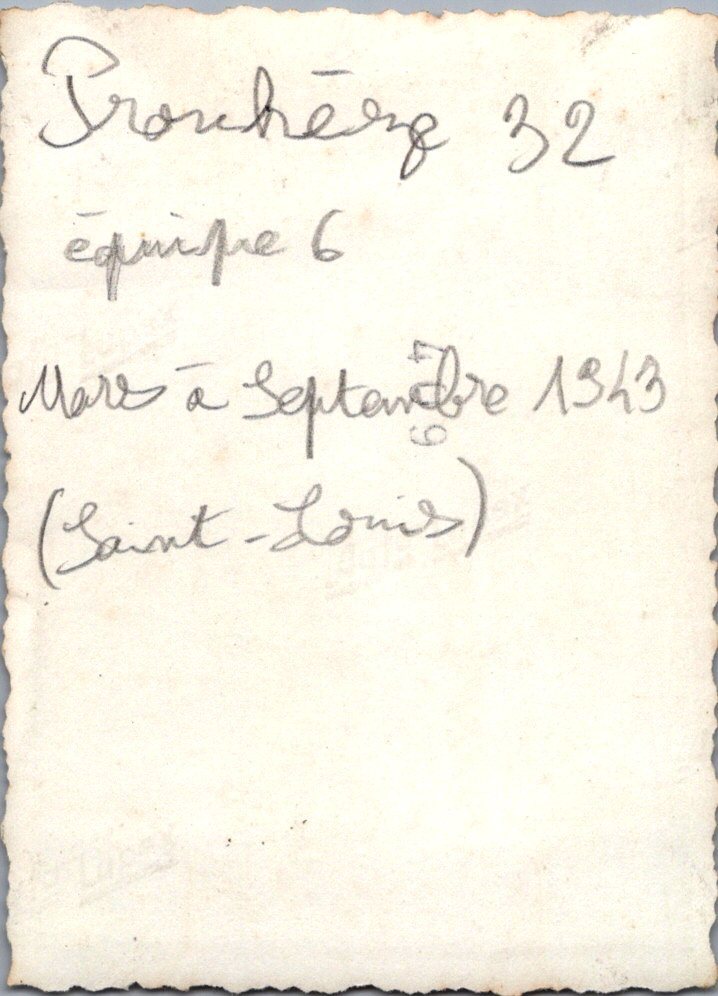 32
équipe 6
Mars à Septembre 1943
(Saint-Louis)